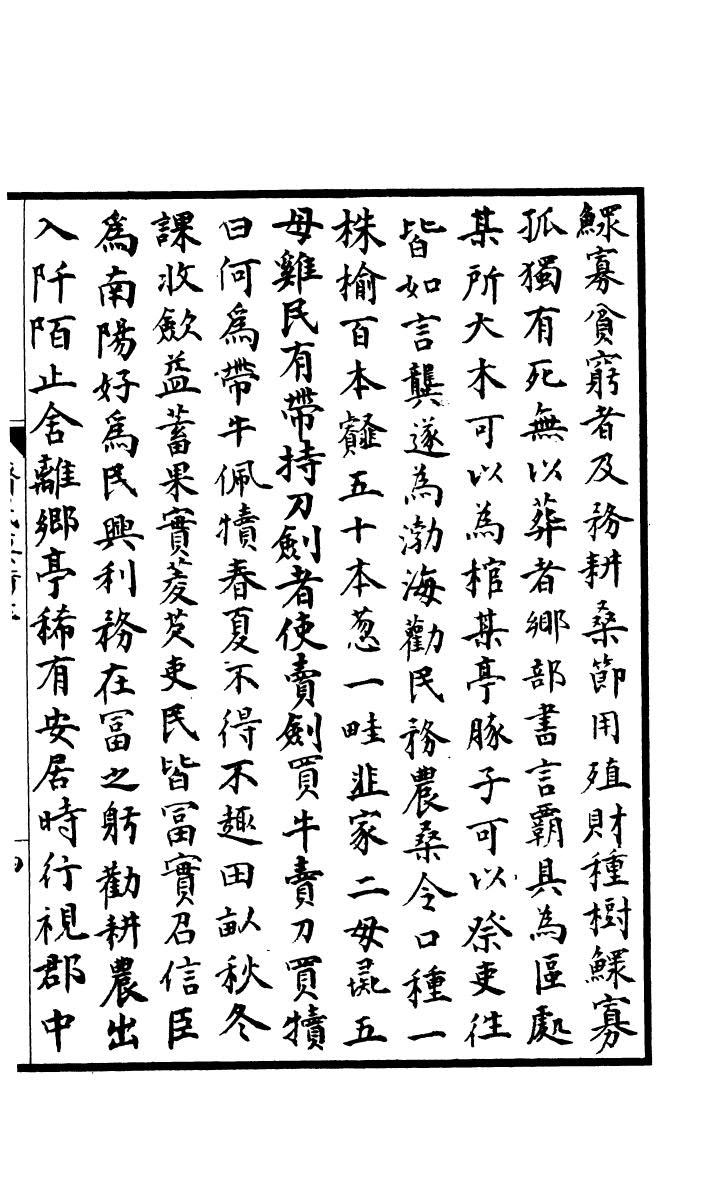 鰥寡貧窮者及務耕桑節用殖財種樹鰥寡
孤獨有死無以葬者鄉部書言霸具為區處
某所大木可以為棺某亭豚子可以祭吏往
皆如言龔遂為渤海勸民務農桑令口種一
株榆百本䪥五十本葱一畦韭家二母彘五
母雞民有帶持刀劍者使賣劍買牛賣刀買犢
曰何為帶牛佩犢春夏不得不趣田畝秋冬
課收斂益蓄果實菱芡吏民皆冨實召信臣
為南陽好為民興利務在冨之躬勸耕農出
入阡陌止舍離鄉亭稀有安居時行視郡中